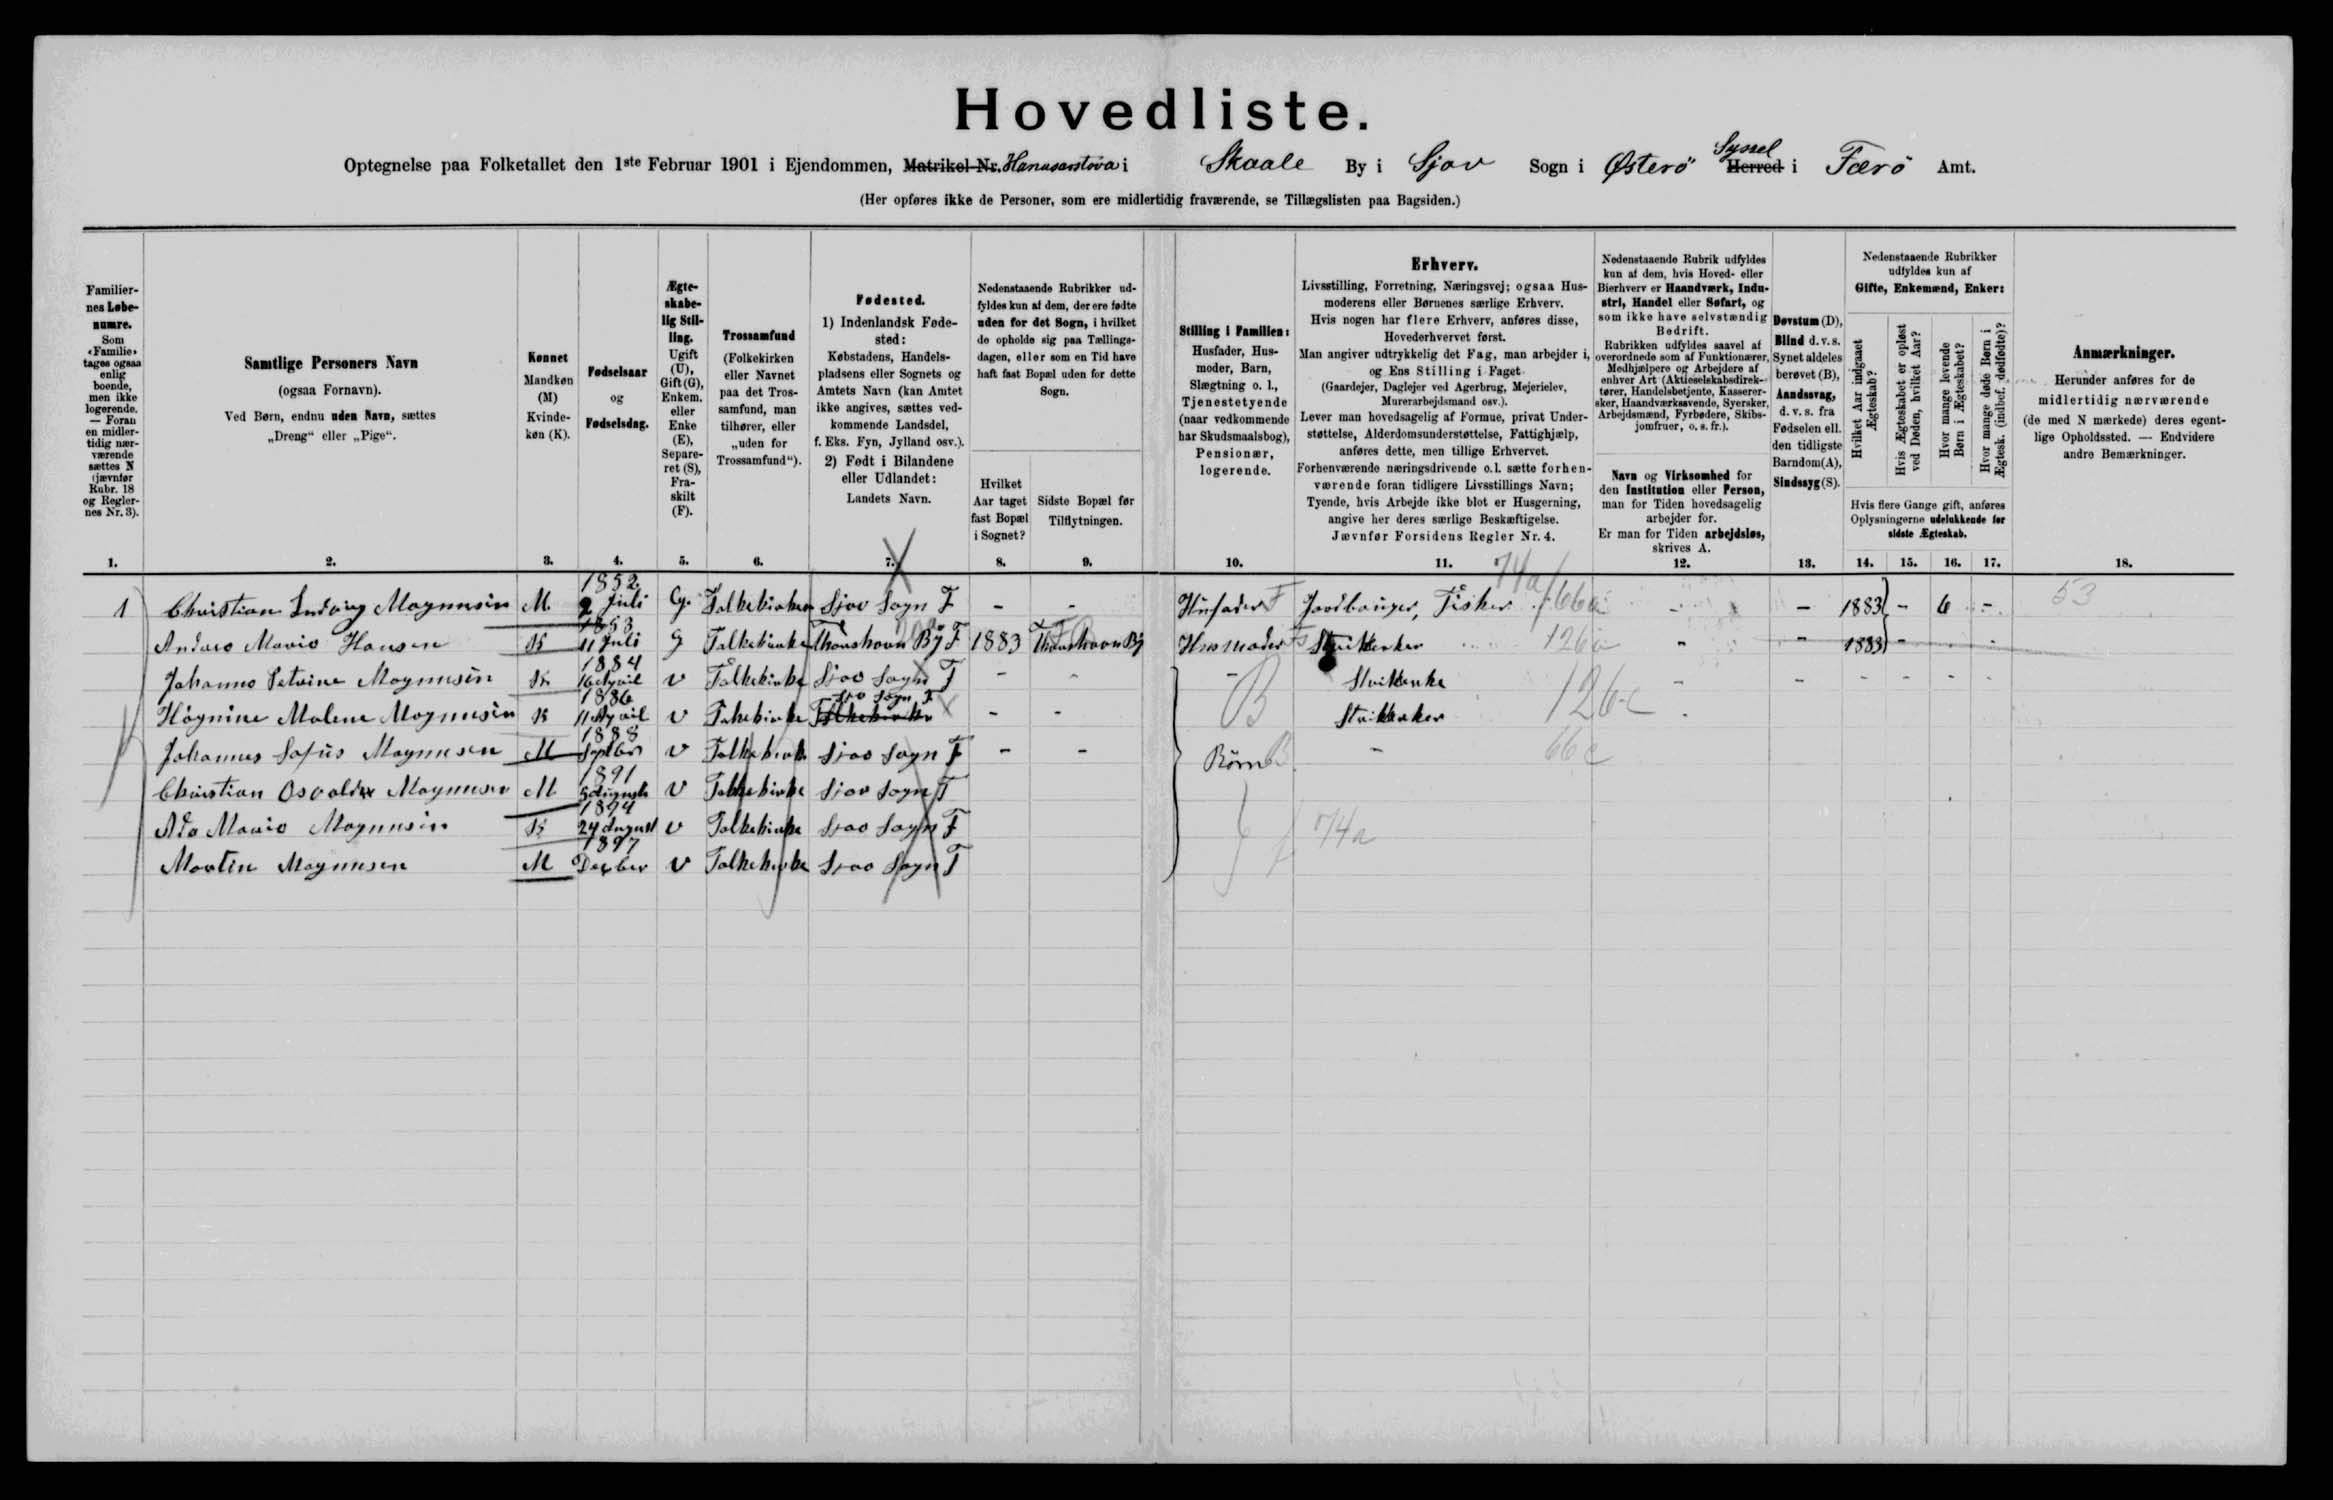 Hovedliste.
Optegnelse paa Folketallet den 1ste Februar 1901 i Ejendommen, Matrikel-Nr. Hanusarstova i Skaale By i Sjov Sogn i Østerö Herred Syssel i Færö Amt.
(Her opføres ikke de Personer, som ere midlertidig fraværende, se Tillægslisten paa Bagsiden.)
Familiernes Løbenumre.
Som «Familie» tages ogsaa enlig boende, men ikke logerende. — Foran en midlertidig nærværende sættes N (jævnfør Rubr. 18 og Reglernes Nr. 3).
Samtlige Personers Navn
(ogsaa Fornavn).
Ved Børn, endnu uden Navn, sættes
„Dreng“ eller „Pige“.
Kønnet
Mandkøn (M)
Kvindekøn (K).
Fødselsaar
og
Fødselsdag.
Ægteskabelig Stilling.
Ugift (U), Gift (G), Enkem. eller Enke (E), Separeret (S), Fraskilt (F).
Trossamfund
(Folkekirken eller Navnet paa det Trossamfund, man tilhører, eller „uden for Trossamfund“).
Fødested.
1) Indenlandsk Fødested:
Købstadens, Handelspladsens eller Sognets og Amtets Navn (kan Amtet ikke angives, sættes vedkommende Landsdel, f. Eks. Fyn, Jylland osv.).
2) Født i Bilandene eller Udlandet:
Landets Navn.
Nedenstaaende Rubrikker udfyldes kun af dem, der ere fødte uden for det Sogn, i hvilket de opholde sig paa Tællingsdagen, eller som en Tid have haft fast Bopæl uden for dette Sogn.
Hvilket Aar taget fast Bopæl i Sognet?
Sidste Bopæl før Tilflytningen.
Stilling i Familien:
Husfader, Husmoder, Barn, Slægtning o. l., Tjenestetyende (naar vedkommende har Skudsmaalsbog), Pensionær, logerende.
Erhverv.
Livsstilling, Forretning, Næringsvej; ogsaa Husmoderens eller Børnenes særlige Erhverv.
Hvis nogen har flere Erhverv, anføres disse, Hovederhvervet først.
Man angiver udtrykkelig det Fag, man arbejder i, og Ens Stilling i Faget
(Gaardejer, Daglejer ved Agerbrug, Mejerielev, Murerarbejdsmand osv.).
Lever man hovedsagelig af Formue, privat Understøttelse, Alderdomsunderstøttelse, Fattighjælp, anføres dette, men tillige Erhvervet.
Forhenværende næringsdrivende o.l. sætte forhenværende foran tidligere Livsstillings Navn;
Tyende, hvis Arbejde ikke blot er Husgerning, angive her deres særlige Beskæftigelse.
Jævnfør Forsidens Regler Nr. 4.
Nedenstaaende Rubrik udfyldes kun af dem, hvis Hoved- eller Bierhverv er Haandværk, Industri, Handel eller Søfart, og som ikke have selvstændig Bedrift.
Rubrikken udfyldes saavel af overordnede som af Funktionærer, Medhjælpere og Arbejdere af enhver Art (Aktieselskabsdirektører, Handelsbetjente, Kasserersker, Haandværkssvende, Syersker, Arbejdsmænd, Fyrbødere, Skibsjomfruer, o. s. fr.).
Navn og Virksomhed for den Institution eller Person, man for Tiden hovedsagelig arbejder for.
Er man for Tiden arbejdsløs, skrives A.
Døvstum (D), Blind d. v. s. Synet aldeles berøvet (B), Aandssvag, d. v. s. fra Fødselen ell. den tidligste Barndom (A), Sindssyg (S).
Nedenstaaende Rubrikker udfyldes kun af
Gifte, Enkemænd, Enker:
Hvilket Aar indgaaet Ægteskab?
Hvis Ægteskabet er opløst ved Døden, hvilket Aar?
Hvor mange levende Børn i Ægteskabet?
Hvor mange døde Børn i Ægtesk. (indbef. dødfødte)?
Hvis flere Gange gift, anføres Oplysningerne udelukkende for sidste Ægteskab.
Anmærkninger.
Herunder anføres for de midlertidig nærværende (de med N mærkede) deres egentlige Opholdssted. — Endvidere andre Bemærkninger.
1. 2. 3. 4. 5. 6. 7. 8. 9. 10. 11. 12. 13. 14. 15. 16. 17. 18.
1 Christian Ludvig Magnusin M. 1852 2 Juli G. Folkekirken Sjov Sogn F - - Husfader F Jordbruger, Fisker 74a/66a - - 1883 - 6 - 53
Andrea Maria Hansen K 1853 11 Juli G Folkekirke Thorshavn By F 1883 Thorshavn By Husmoder Strikkerker 126a - - 1883 - -
Johanne Petrine Magnusin K 1884 16 April U Folkekirke Sjov Sogn F - - - B Strikkerke - - - - - -
Högnine Malene Magnusin K 1886 11 April U Folkekirke Sjov Sogn F - - Strikkerker 126c
Johannes Sofus Magnusen M 1888 Septber U Folkekirke Sjov Sogn F - - Börn B - 66c
Christian Osvald Magnusen M 1891 5 August U Folkekirke Sjov Sogn F
Ada Maria Magnusin K 1894 24 August U Folkekirke Sjov Sogn F 74a
Martin Magnusen M 1897 Decber U Folkekirke Sjov Sogn F